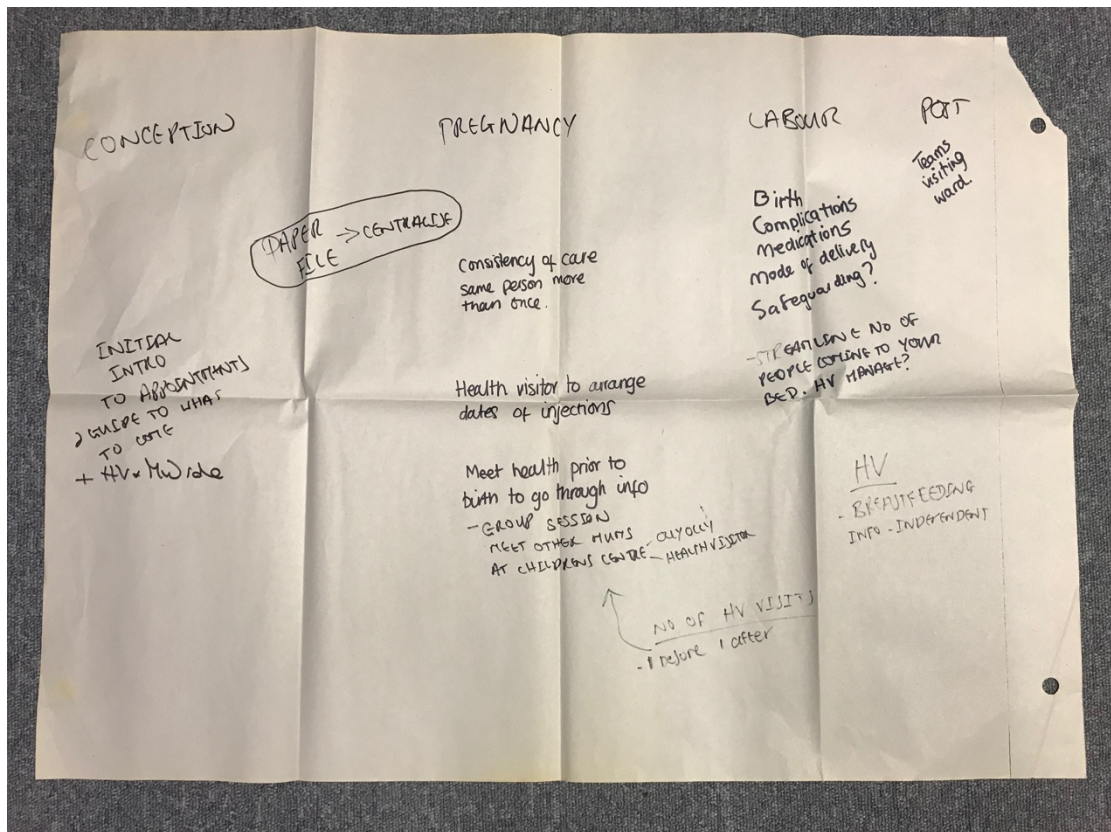 CONCEPTION
INITIAL
INTRO
TO APPOINTMENTS
GUIDE TO WHAT
TO COME
+ HV
PAPER → CENTRALISE
FILE
PREGNANCY
Consistency of care
same person more
than once.
Health visitor to arrange
dates of injections
Meet health prior to
birth to go through info
- GROUP SESSION
MEET OTHER MUMS
AT CHILDRENS CENTRE - HEALTH VISITOR
NO OF HV VISITS
- 1 before 1 after
LABOUR
Birth
Complications
Medications
mode of delivery
Safeguarding?
- STREAMLINE NO OF
PEOPLE COMING TO YOUR
BED. HV MANAGE?
POST
Teams
visiting
ward.
HV
- BREASTFEEDING
INFO - INDEPENDENT